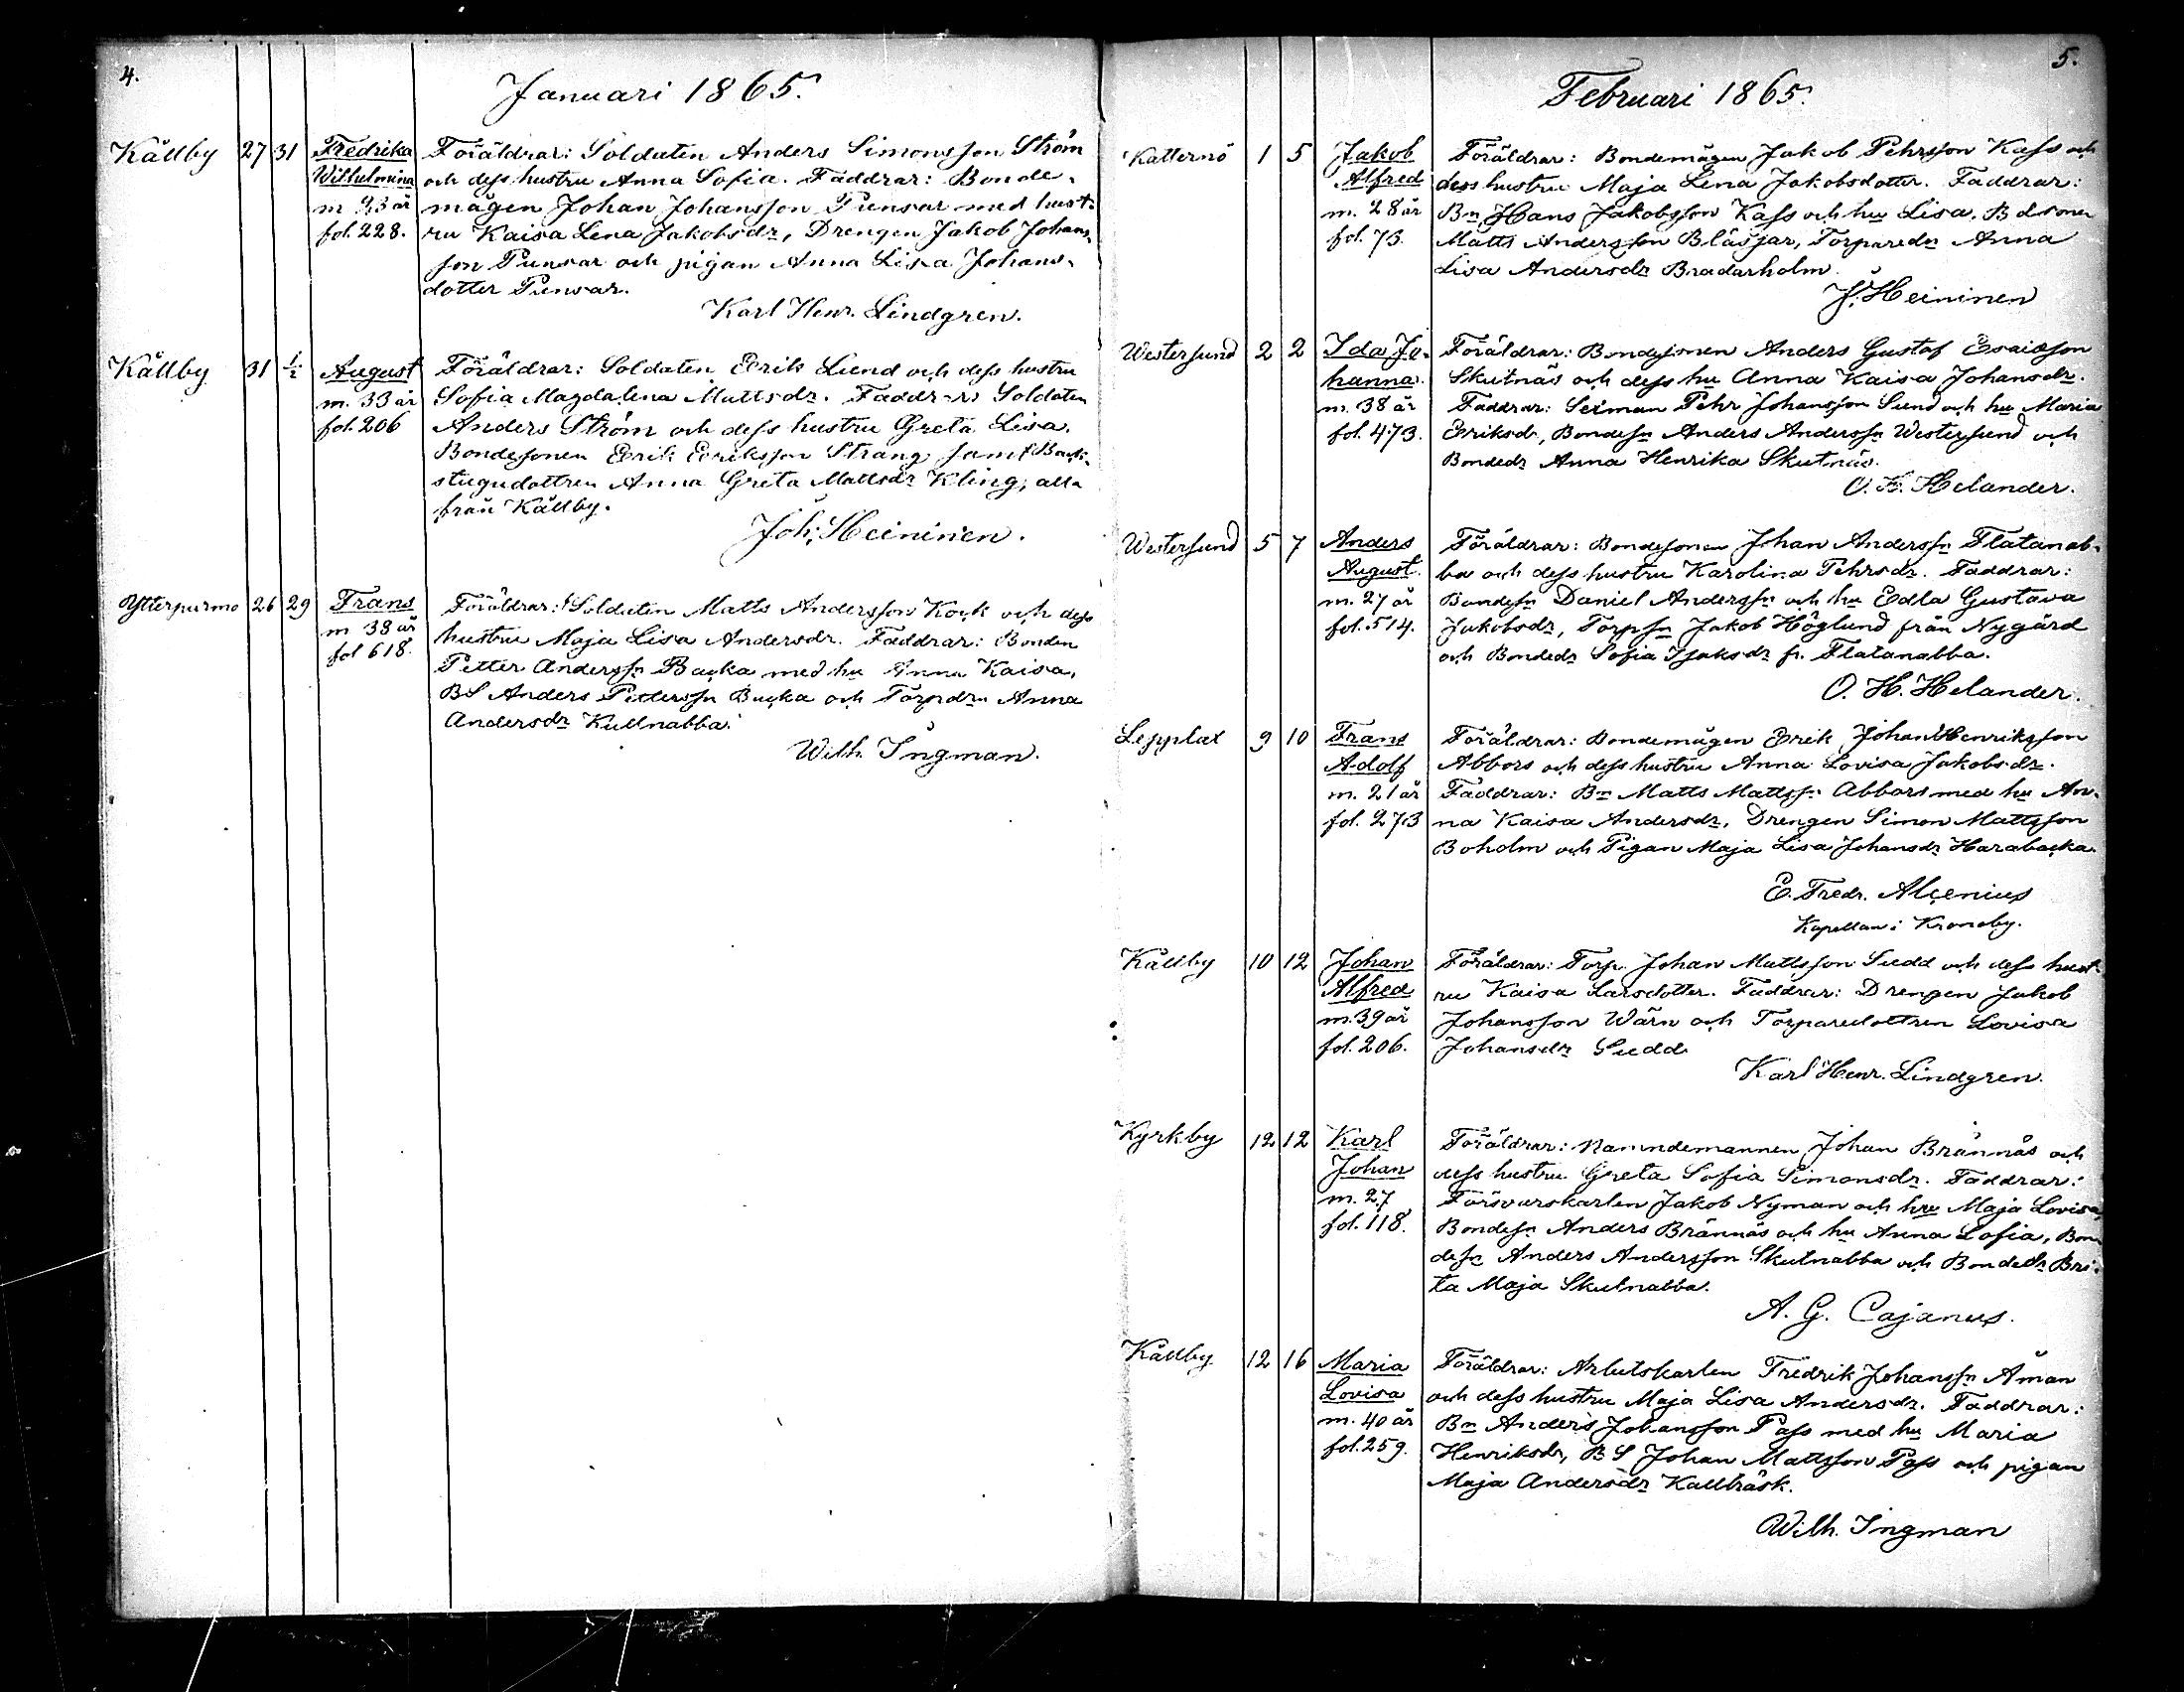 4.
Januari 1865.
Kållby 27 31 Fredrika Föräldrar: Soldaten Anders Simonsson Ström
Wilhelmina och dess hustru Anna Sofia. Faddrar: Bonde-
m 33 år mågen Johan Johansson Punsar med hust-
fol. 228. ru Kaisa Lena Jakobsdr, Drengen Jakob Johans-
son Punsar och pigan Anna Lisa Johans-
dotter Punsar.
Karl Henr. Lindgren.
Kållby 31 1/2 August Föräldrar: Soldaten Erik Lund och dess hustru
m. 33 år Sofia Magdalena Mattsdr. Faddrar: Soldaten
fol. 206 Anders Ström och dess hustru Greta Lisa.
Bondesonen Erik Eriksson Strang samt Back-
stugudottren Anna Greta Mattsdr Kling, alla
från Kållby.
Joh. Heininen.
Ytterpurmo 26 29 Frans Föräldrar: Soldaten Matts Andersson Kock och dess
m 38 år hustru Maja Lisa Andersdr. Faddrar: Bonden
fol 618. Petter Anderssn Backa med hu Anna Kaisa,
BS Anders Petterssn Backa och Torpdrn Anna
Andersdr Kullnabba.
Wilh. Ingman.
5.
Februari 1865.
Katternö 1 5 Jakob Föräldrar: Bondemågen Jakob Pehrsson Kass och
Alfred dess hustru Maja Lena Jakobsdotter. Faddrar:
m. 28 år Bn Hans Jakobsson Kass och hu Lisa, Bdsonen
fol. 73. Matts Andersson Blåsjar, Torparedn Anna
Lisa Andersdr Bradarholm.
J. Heininen
Westersund 2 2 Ida Jo- Föräldrar: Bondesonen Anders Gustaf Esaiasson
hanna. Skutnäs och dess hu Anna Kaisa Johansdr.
m. 38 år Faddrar: Seiman Pehr Johansson Sund och hu Maria
fol. 473. Eriksdr, Bondesn Anders Anderssn Westersund och
Bondedr Anna Henrika Skutnäs.
O. H. Helander.
Westersund 5 7 Anders Föräldrar: Bondesonen Johan Anderssn Flatanab-
August. ba och dess hustru Karolina Pehrsdr. Faddrar:
m. 27 år Bondesn Daniel Anderssn och hu Edla Gustava
fol. 514. Jakobsdr, Torpsn Jakob Höglund från Nygård
och Bondedr Sofia Isaksdr fr. Flatanabba.
O. H. Helander.
Lepplax 9 10 Frans Föräldrar: Bondemågen Erik Johan Henriksson
Adolf Abbors och dess hustru Anna Lovisa Jakobsdr.
m. 21 år Faddrar: Bn Matts Mattssn Abbors med hu An-
fol. 273 na Kaisa Andersdr, Drengen Simon Mattsson
Boholm och Pigan Maja Lisa Johansdr Harabacka.
E. Fredr. Alcenius
Kapellan i Kronoby.
Kållby 10 12 Johan Föräldrar: Torp. Johan Mattsson Sudd och dess hust-
Alfred ru Kaisa Larsdotter. Faddrar: Drengen Jakob
m. 39 år Johansson Wärn och Torparedottren Lovisa
fol. 206. Johansdr Sudd
Karl Henr. Lindgren.
Kyrkby 12 12 Karl Föräldrar: Nämndemannen Johan Brännäs och
Johan dess hustru Greta Sofia Simonsdr. Faddrar:
m. 27 Försvarskarlen Jakob Nyman och hru Maja Lovisa,
fol. 118. Bondesn Anders Brännäs och hu Anna Sofia, Bon-
desn Anders Andersson Skutnabba och Bondedr Bri-
ta Maja Skutnabba.
A. G. Cajanus.
Kållby 12 16 Maria Föräldrar: Arbetskarlen Fredrik Johanssn Åman
Lovisa och dess hustru Maja Lisa Andersdr. Faddrar:
m. 40 år Bn Anders Johansson Pass med hu Maria
fol. 259. Henriksdr, BS Johan Mattsson Pass och pigan
Maja Andersdr Kallträsk.
Wilh. Ingman